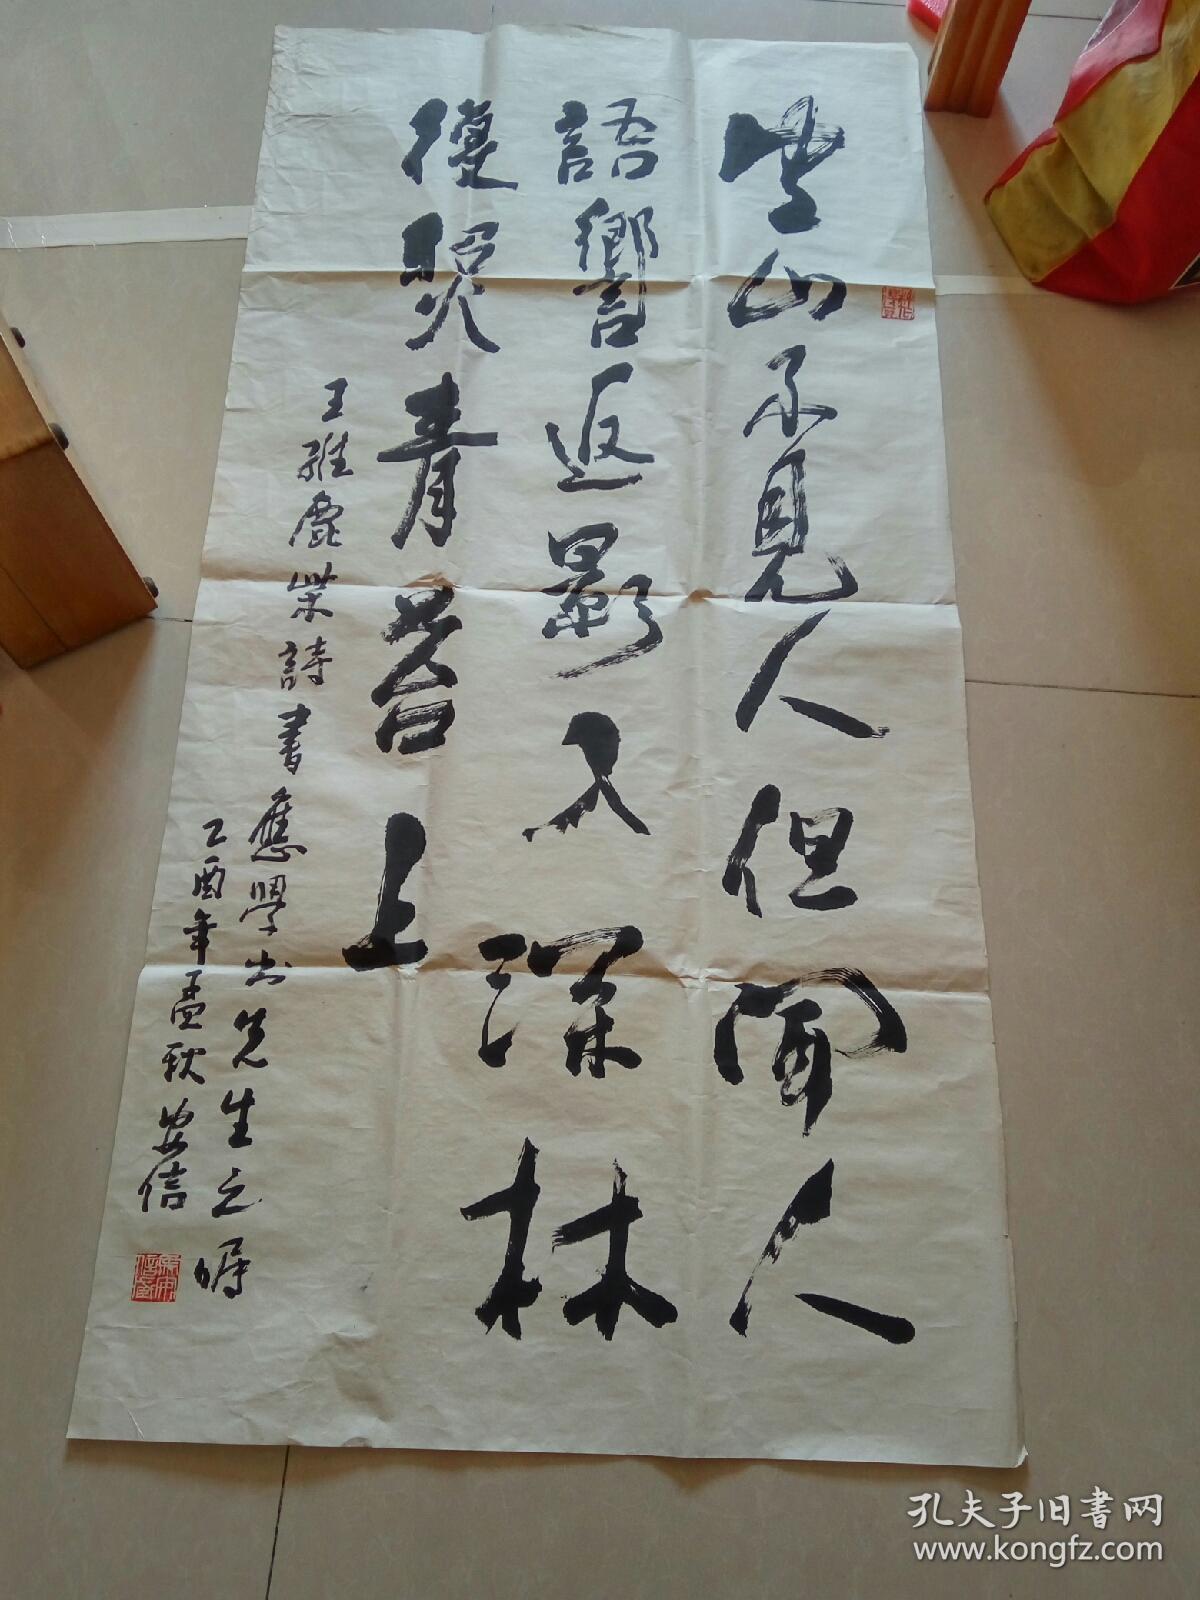 空山不見人但聞人
語響返景彡入深林
復照青苔上
王維鹿柴詩書應學出先生之嘱
乙酉年孟秋安信
孔夫子旧书网
www.kongfz.com